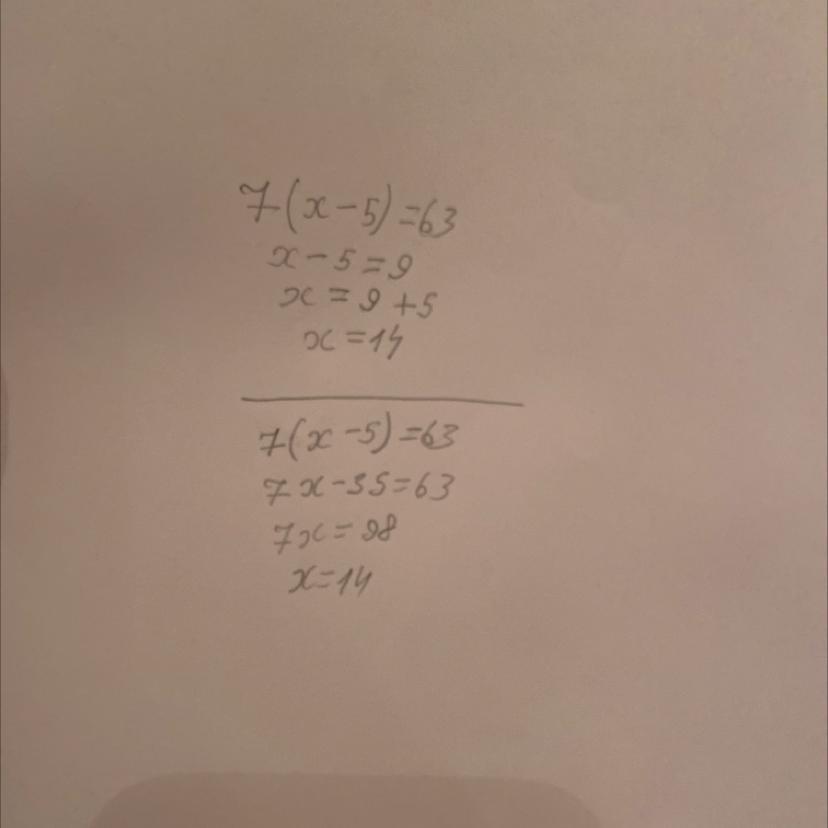 7(x-5)=63
x-5=9
x=9+5
x=14
7(x-5)=63
7x-35=63
7x=98
x=14